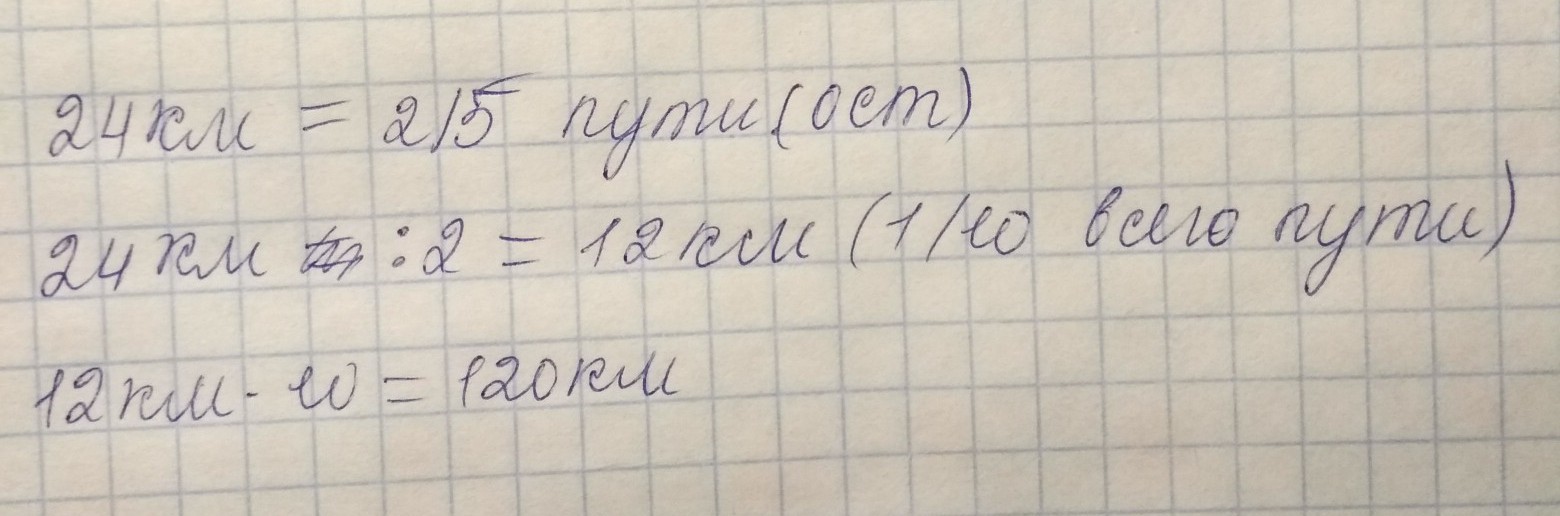 24км = 2/5 пути (ост)
24км : 2 = 12км (1/10 всего пути)
12км · 10 = 120км